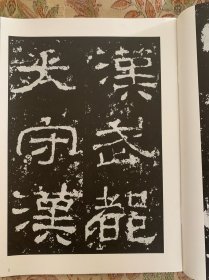 漢武都
太守漢